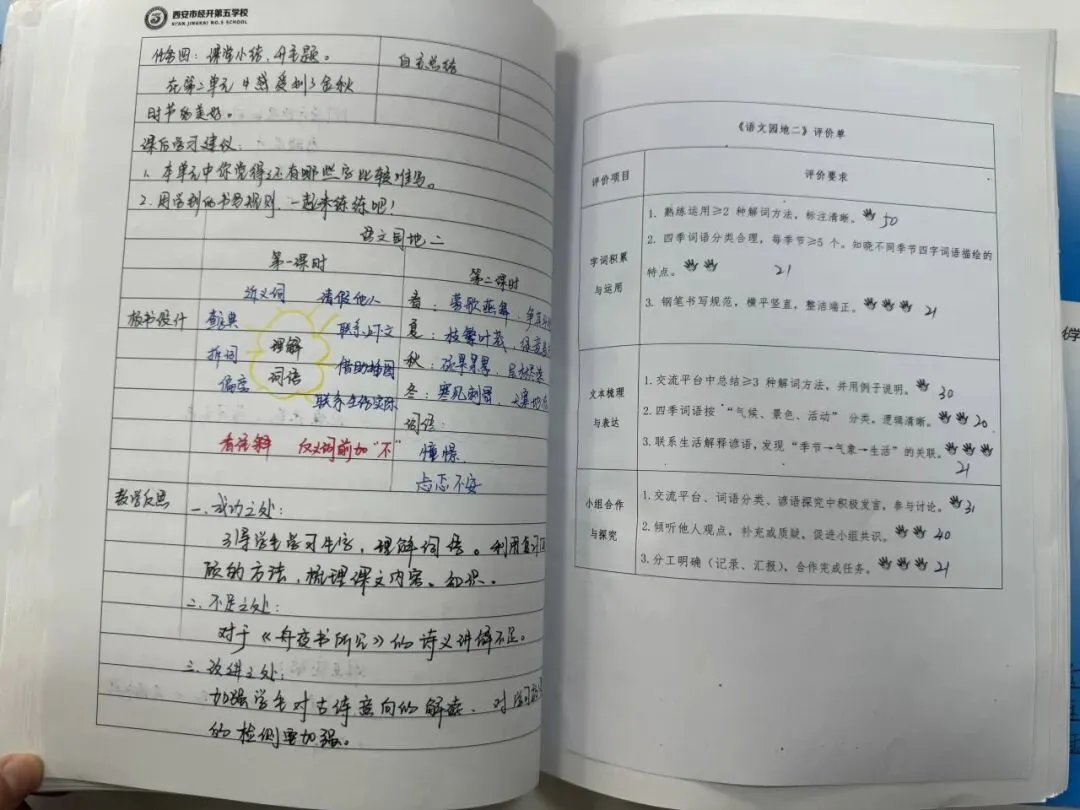 西安市经开第五学校
XI'AN JINGKAI NO.5 SCHOOL
任务四：课堂小结，升主题。
自主总结
在第二单元中感受到了金秋
时节的美好。
课后学习建议：
1. 本单元中你觉得还有哪些字比较难写。
2. 用学到的书写规则，一起来练练吧！
语文园地二
板书设计
第一课时
近义词 请教他人
查字典
联系上下文
理解
词语
拆词
借助插图
偏旁
联系生活实际
看注释 反义词前加“不”
第二课时
春：莺歌燕舞
夏：枝繁叶茂
秋：硕果累累
冬：寒风刺骨
词语：
憧憬
忐忑不安
教学反思
一、成功之处：
引导学生学习生字，理解词语。利用复习
的方法，梳理课文内容、知识。
二、不足之处：
对于《舟夜书所见》的诗义讲解不足。
三、改进之处：
加强学生对古诗意向的解读、对学习
的检测要加强。
《语文园地二》评价单
评价项目
评价要求
字词积累
与运用
1. 熟练运用≥2 种解词方法，标注清晰。 50
2. 四季词语分类合理，每季节≥5 个。知晓不同季节四字词语描绘的
特点。 21
3. 钢笔书写规范，横平竖直，整洁端正。 21
文本梳理
与表达
1.交流平台中总结≥3 种解词方法，并用例子说明。 30
2.四季词语按“气候、景色、活动”分类，逻辑清晰。 20
3.联系生活解释谚语，发现“季节→气象→生活”的关联。
21
小组合作
与探究
1.交流平台、词语分类、谚语探究中积极发言，参与讨论。 31
2.倾听他人观点，补充或质疑，促进小组共识。 40
3.分工明确（记录、汇报），合作完成任务。 21